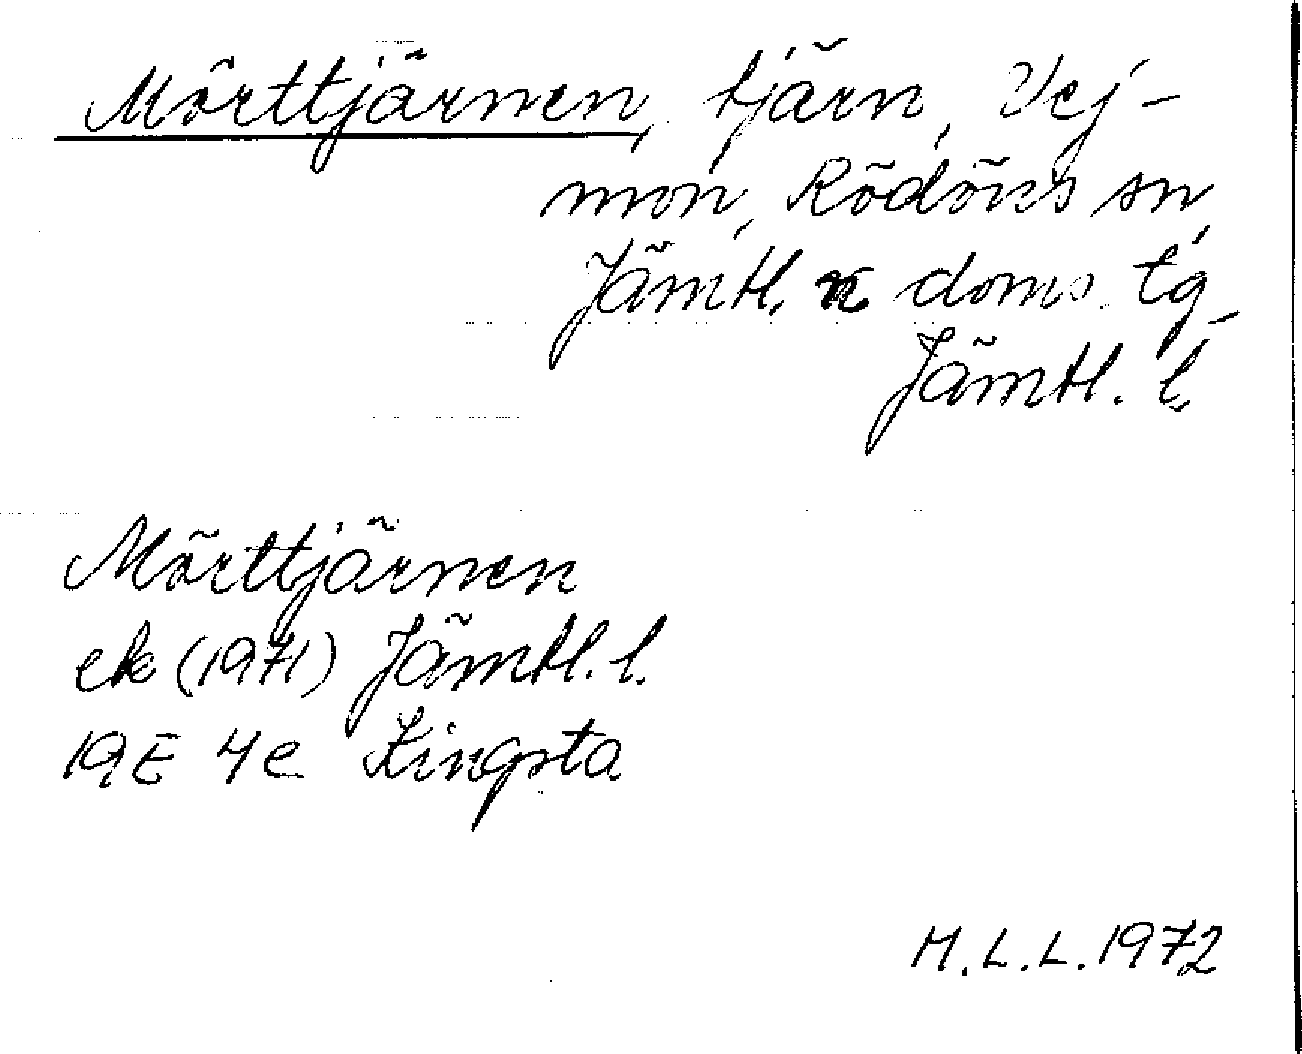 Mörttjärnen, tjärn, Vej-
mon, Rödöns sn,
Jämtl. n doms. tg,
Jämtl. l.
Mörttjärnen
ek (1971) Jämtl. l.
19E 4e Kingsta
M.L.L. 1972